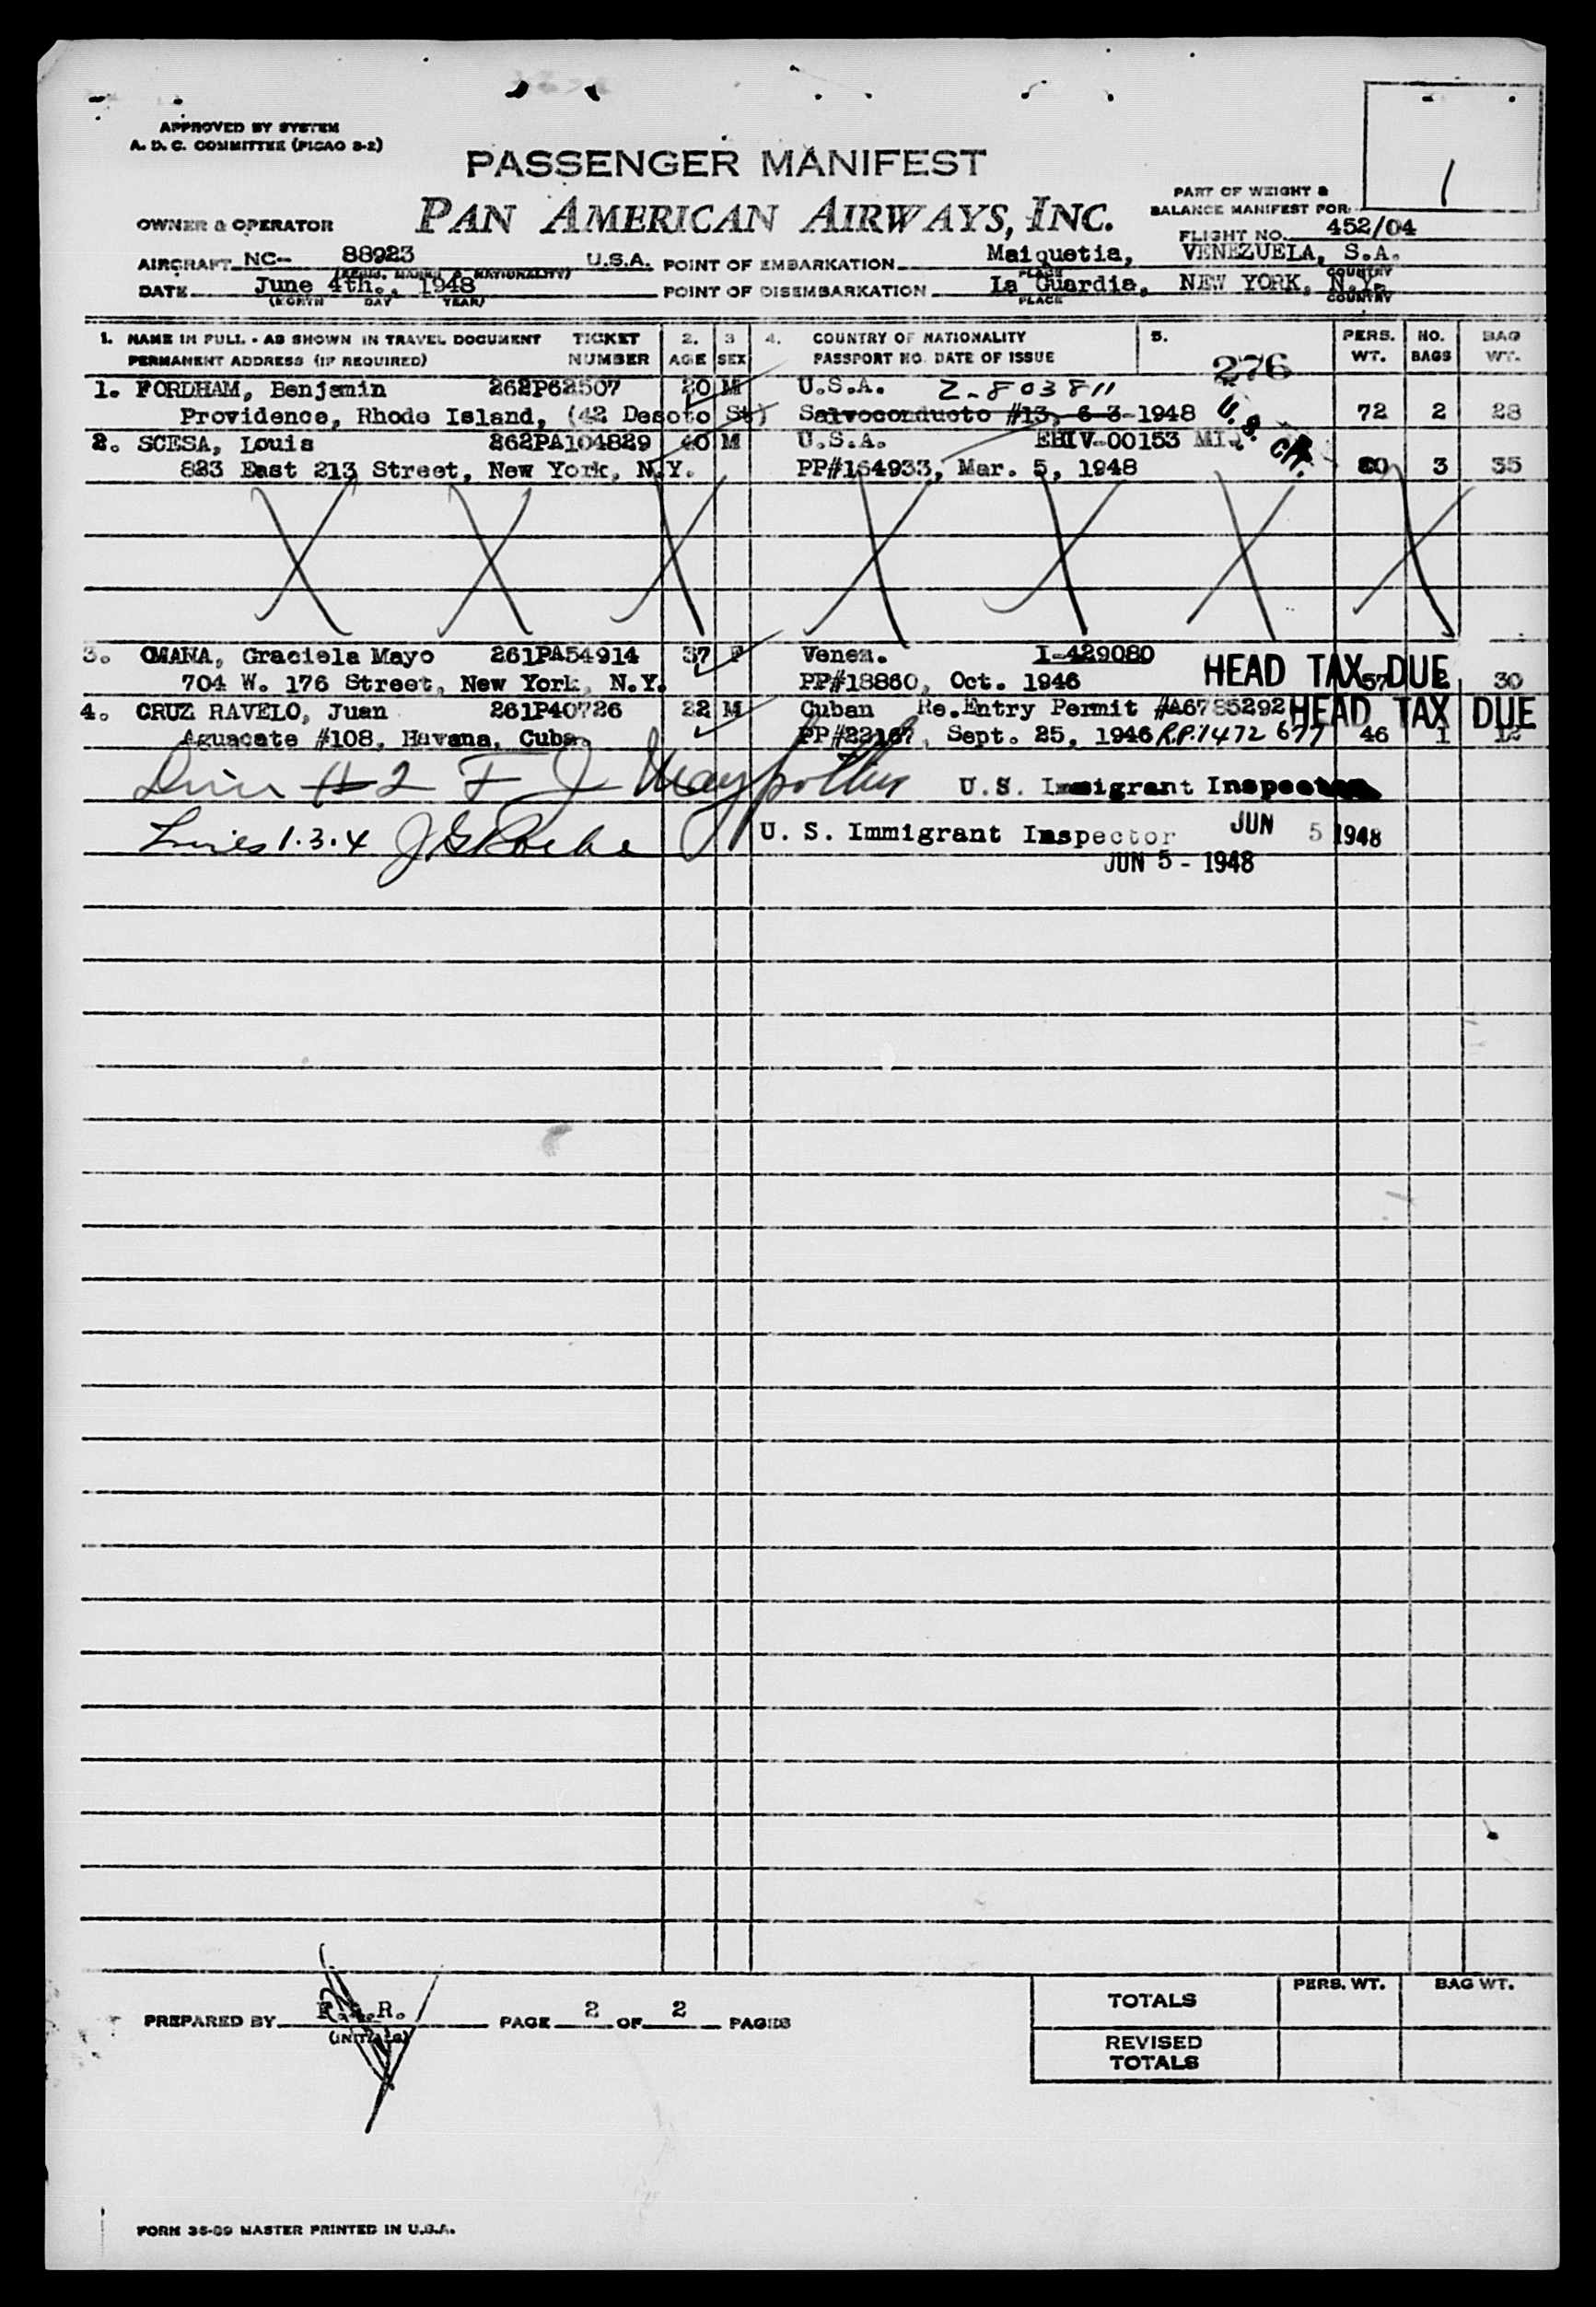 1
APPROVED BY SYSTEM
A. D. C. COMMITTEE (PICAO S-2)
PASSENGER MANIFEST
PART OF WEIGHT &
BALANCE MANIFEST FOR
OWNER & OPERATOR PAN AMERICAN AIRWAYS, INC.
FLIGHT NO. 452/04
AIRCRAFT NC-- 88923 U.S.A. POINT OF EMBARKATION Maiquetia, VENEZUELA, S.A.
(REGIS. MARKS & NATIONALITY) PLACE COUNTRY
DATE June 4th., 1948 POINT OF DISEMBARKATION La Guardia, NEW YORK, N.Y.
(MONTH DAY YEAR) PLACE COUNTRY
1. NAME IN FULL - AS SHOWN IN TRAVEL DOCUMENT TICKET 2. 3 4. COUNTRY OF NATIONALITY 5. PERS. NO. BAG
PERMANENT ADDRESS (IF REQUIRED) NUMBER AGE SEX PASSPORT NO. DATE OF ISSUE 276 WT. BAGS WT.
1. FORDHAM, Benjamin 262P62507 20 M U.S.A. Z-803811
Providence, Rhode Island, (42 Desoto St) Salvoconducto #13, 6-3-1948 U.S. CIT. 72 2 28
2. SCESA, Louis 262PA104829 40 M U.S.A. 00153 MIQ.
823 East 213 Street, New York, N.Y. PP#164933, Mar. 5, 1948 80 3 35
3. OMAÑA, Graciela Mayo 261PA54914 37 F Venez. I-429080
704 W. 176 Street, New York, N.Y. PP#18860, Oct. 1946 HEAD TAX DUE 57 30
4. CRUZ RAVELO, Juan 261P40726 22 M Cuban Re.Entry Permit #A6785292 HEAD TAX DUE
Aguacate #108, Havana, Cuba. PP#22167, Sept. 25, 1946 R.P. 1472 677 46 1 12
#2 U.S. Immigrant Inspector
Lines 1.3.4 U. S. Immigrant Inspector JUN 5 1948
JUN 5 - 1948
PREPARED BY
(INITIALS)
PAGE 2 OF 2 PAGES
PERS. WT. BAG WT.
TOTALS
REVISED
TOTALS
FORM 35-89 MASTER PRINTED IN U.S.A.